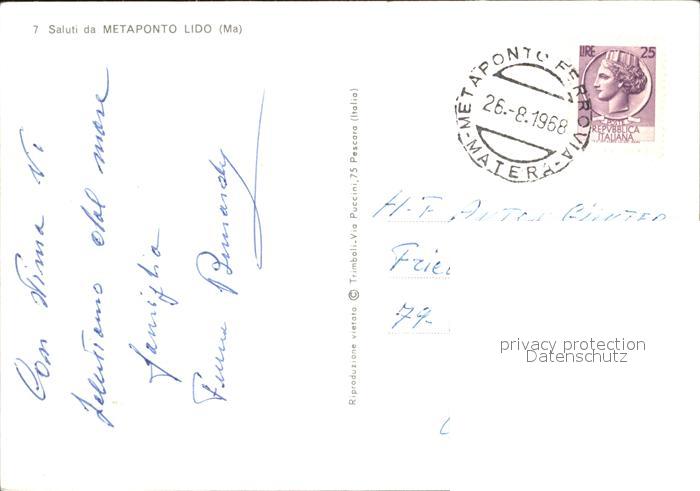 7 Saluti da METAPONTO LIDO (Ma)
Con stima Vi
salutiamo dal mare
famiglia
Riproduzione vietata © Trimboli-Via Puccini,75 Pescara (Italia)
METAPONTO FERROVIA
26.-8.1968
-MATERA-
LIRE 25
POSTE
REPVBBLICA
ITALIANA
79-
privacy protection
Datenschutz